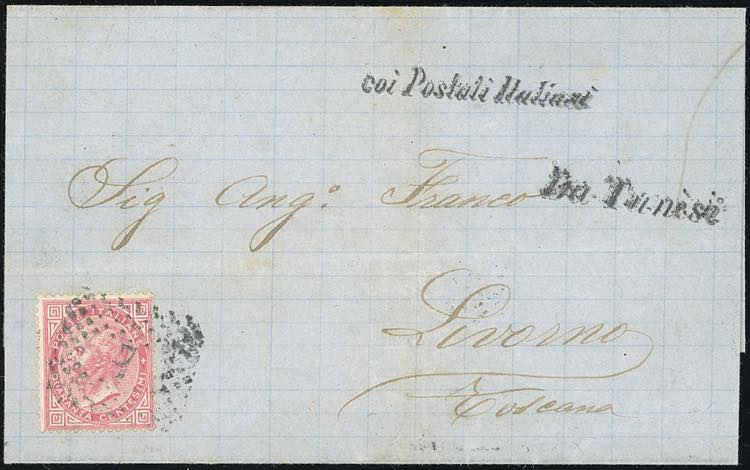 coi Postali Italiani
Da Tunesi
Sig Angº. Franco
Livorno
Toscana
QUARANTA CENTESIMI